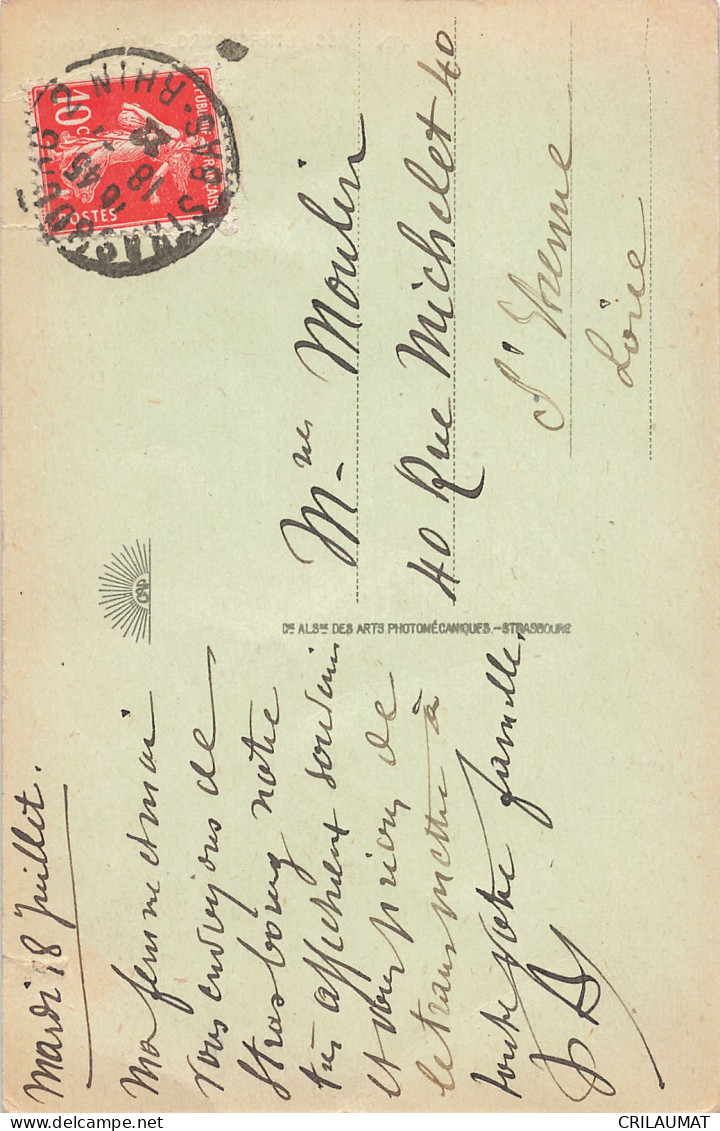 Mardi 18 Juillet.
Ma femme et moi
vous envoyons de
Strasbourg notre
très affectueux souvenir
et vous prions de
le transmettre à
toute votre famille.
Cie ALSne DES ARTS PHOTOMÉCANIQUES.-STRASBOURG
CAP
10c
POSTES
BAS-RHIN
18
45
Mme Moulin
40 Rue Michelet 40
St Etienne
Loire
CRILAUMAT